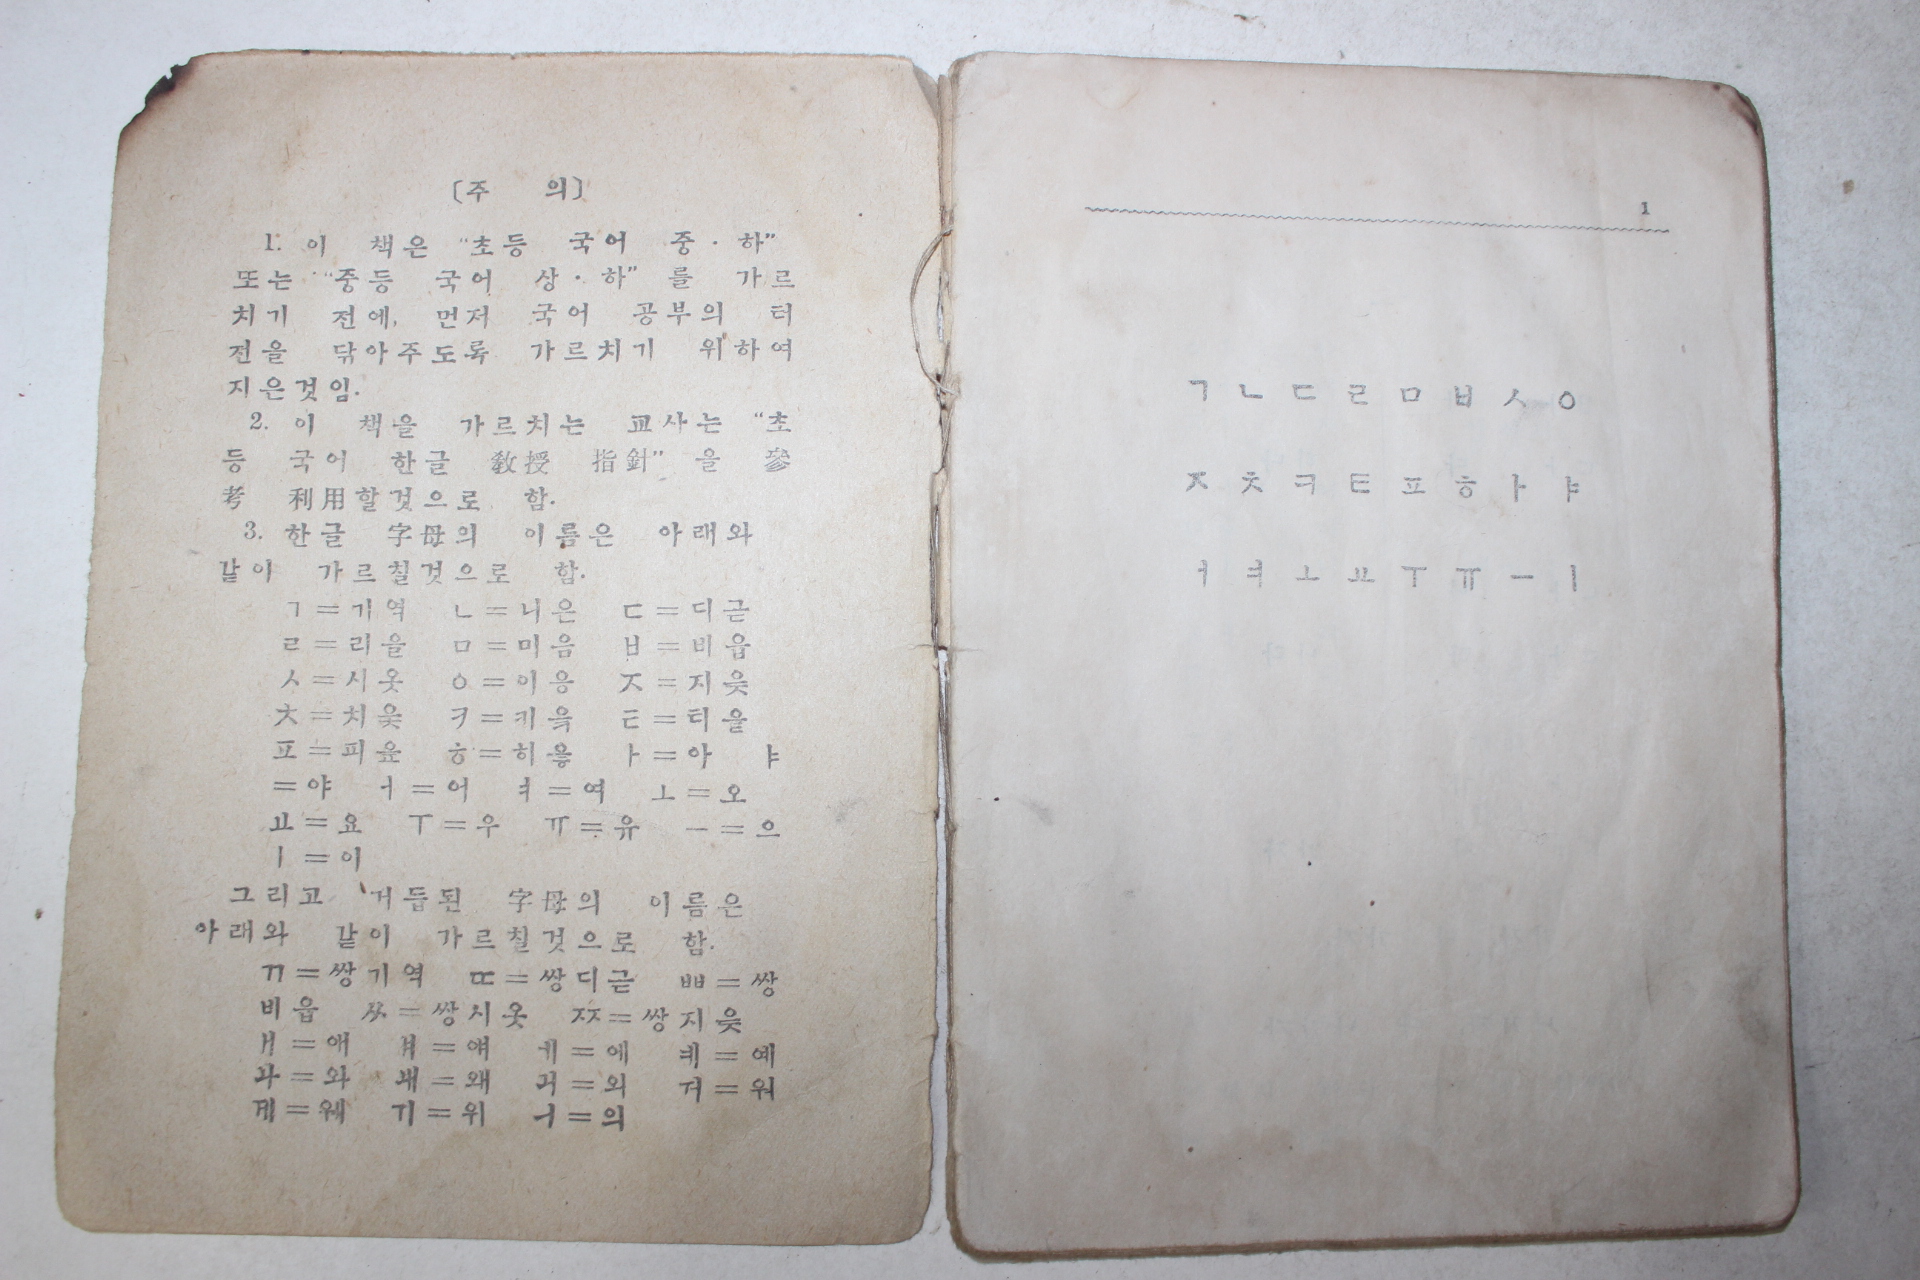 〔주 의〕
1. 이 책은 “초등 국어 중·하”
또는 “중등 국어 상·하” 를 가르
치기 전에, 먼저 국어 공부의 터
전을 닦아주도록 가르치기 위하여
지은것임.
2. 이 책을 가르치는 교사는 “초
등 국어 한글 敎授 指針” 을 參
考 利用할것으로 함.
3. 한글 字母의 이름은 아래와
같이 가르칠것으로 함.
ㄱ=기역 ㄴ=니은 ㄷ=디귿
ㄹ=리을 ㅁ=미음 ㅂ=비읍
ㅅ=시옷 ㅇ=이응 ㅈ=지읒
ㅊ=치읓 ㅋ=키읔 ㅌ=티읕
ㅍ=피읖 ㅎ=히읗 ㅏ=아 ㅑ
=야 ㅓ=어 ㅕ=여 ㅗ=오
ㅛ=요 ㅜ=우 ㅠ=유 ㅡ=으
ㅣ=이
그리고 거듭된 字母의 이름은
아래와 같이 가르칠것으로 함.
ㄲ=쌍기역 ㄸ=쌍디귿 ㅃ=쌍
비읍 ㅆ=쌍시옷 ㅉ=쌍지읒
ㅐ=애 ㅒ=얘 ㅔ=에 ㅖ=예
ㅘ=와 ㅙ=왜 ㅚ=외 ㅝ=워
ㅞ=웨 ㅟ=위 ㅢ=의
1
ㄱ ㄴ ㄷ ㄹ ㅁ ㅂ ㅅ ㅇ
ㅈ ㅊ ㅋ ㅌ ㅍ ㅎ ㅏ ㅑ
ㅓ ㅕ ㅗ ㅛ ㅜ ㅠ ㅡ ㅣ